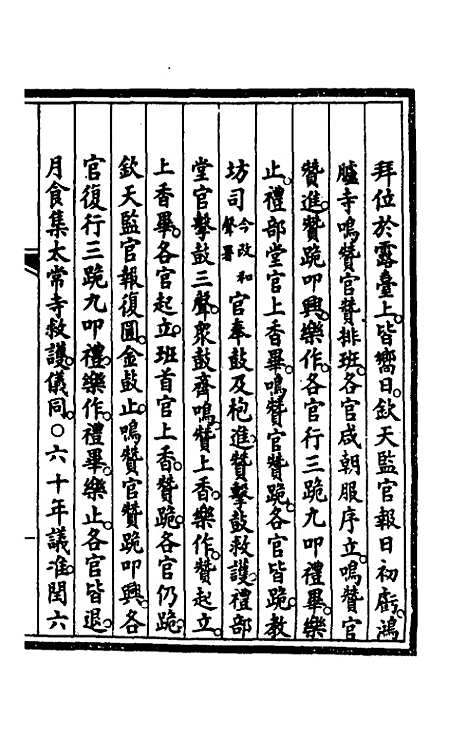 拜位於露臺上。皆嚮日。欽天監官報日初虧。鴻
臚寺鳴贊官贊排班。各官咸朝服序立。鳴贊官
贊進。贊跪叩興。樂作。各官行三跪九叩禮畢。樂
止。禮部堂官上香畢。鳴贊官贊跪。各官皆跪。教
坊司今改和聲署官奉鼓及枹進。贊擊鼓救護。禮部
堂官擊鼓三聲。衆鼓齊鳴。贊上香。樂作。贊起立。
上香畢。各官起立。班首官上香。贊跪。各官仍跪。
欽天監官報復圓。金鼓止。鳴贊官贊跪叩興。各
官復行三跪九叩禮。樂作。禮畢。樂止。各官皆退。
月食集太常寺救護。儀同。○六十年議准。閏六